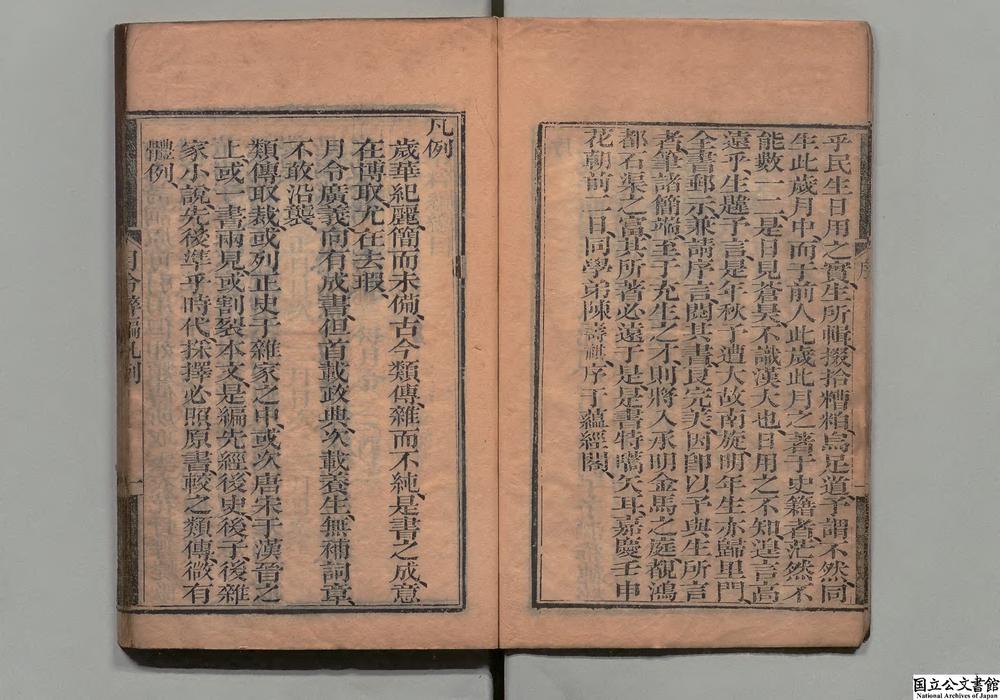 乎民生日用之實生所輯掇拾糟粕烏足道予謂不然同
生此歲月中而于前人此歲此月之著于史籍者茫然不
能數一二是日見蒼昊不識漢大也日用之不知遑言高
遠乎生韙予言是年秋予遭大故南旋明年生亦歸里門
全書郵示兼請序言閱其書良完美因即以予與生所言
者筆諸簡端至于充生之才則將入承明金馬之庭覩鴻
都石渠之富其所著必遠于是是書特嚆矢耳嘉慶壬申
花朝前一日同學弟陳壽祺序于蘊經閣
序
凡例
歲華紀麗簡而未備古今類傳雜而不純是書之成意
在博取尤在去瑕
月令廣義向有成書但首載政典次載養生無補詞章
不敢沿襲
類傳取裁或列正史于雜家之中或次唐宋于漢晉之
上或一書兩見或割裂本文是編先經後史後子後雜
家小說先後準乎時代採擇必照原書較之類傳微有
體例
月令粹編凡例
一
国立公文書館
National Archives of Japan